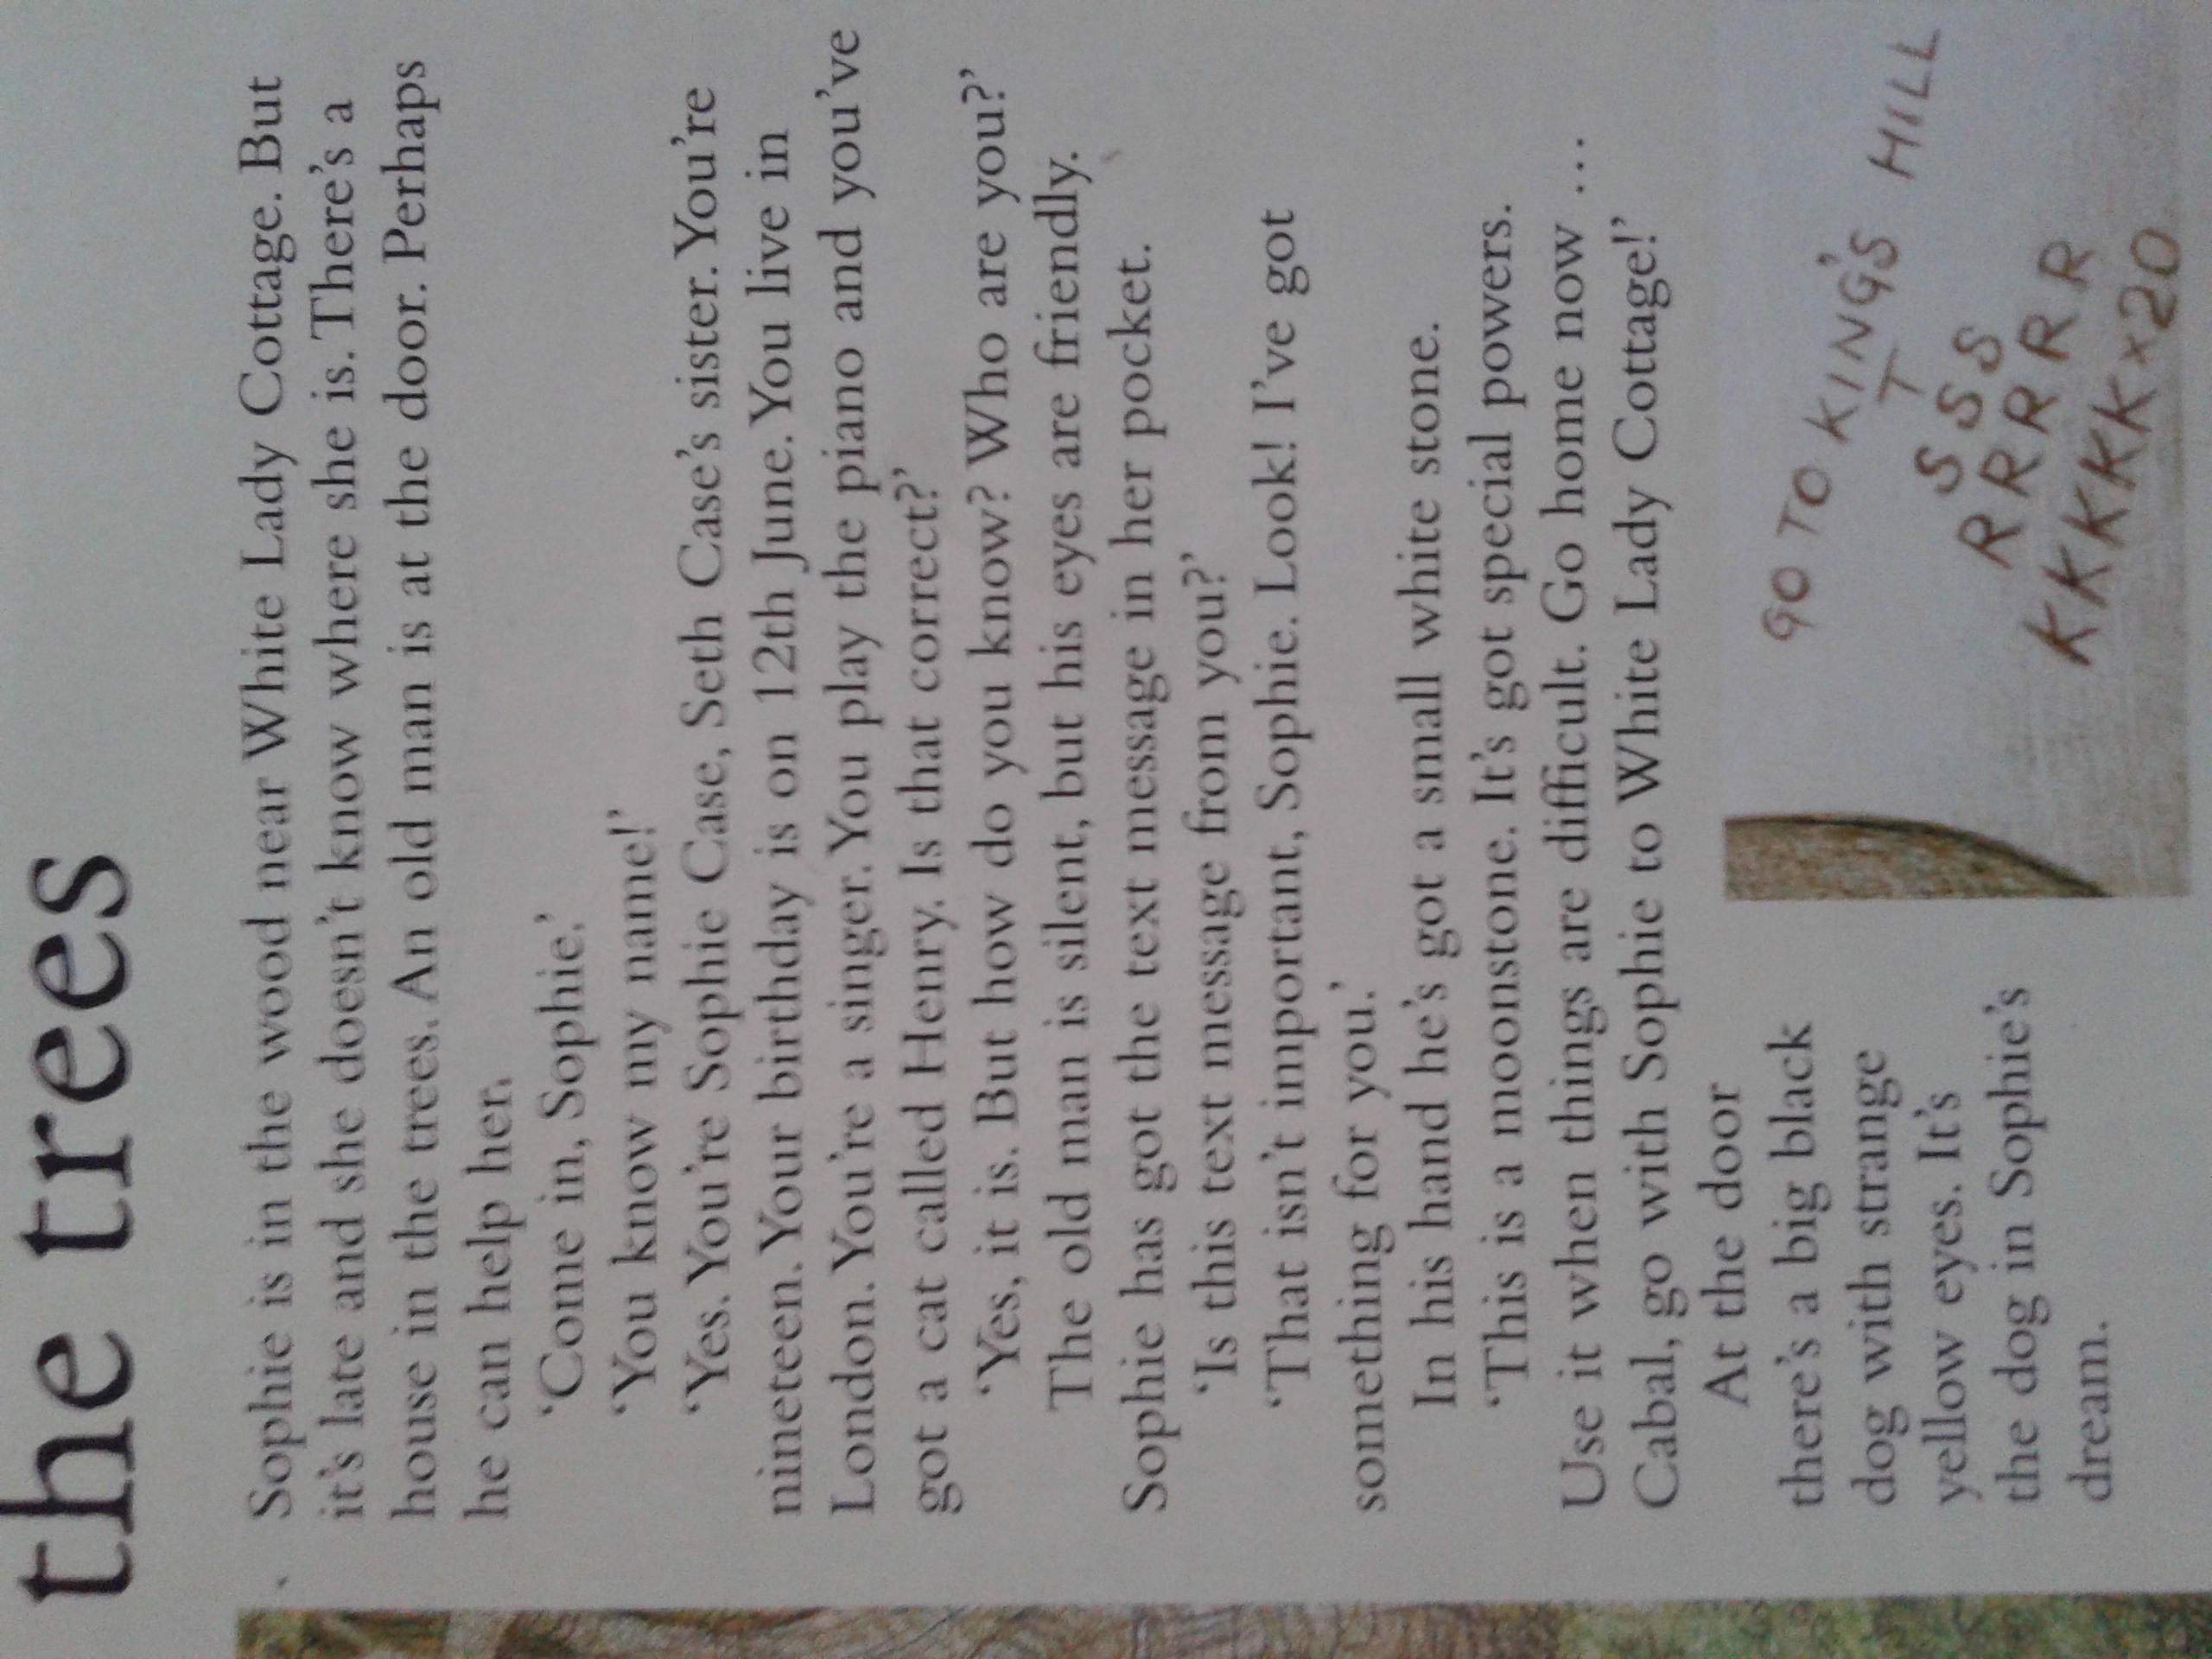 the trees
Sophie is in the wood near White Lady Cottage. But
it's late and she doesn't know where she is. There's a
house in the trees. An old man is at the door. Perhaps
he can help her.
‘Come in, Sophie.’
‘You know my name!’
‘Yes. You're Sophie Case, Seth Case's sister. You're
nineteen. Your birthday is on 12th June. You live in
London. You're a singer. You play the piano and you've
got a cat called Henry. Is that correct?’
‘Yes, it is. But how do you know? Who are you?’
The old man is silent, but his eyes are friendly.
Sophie has got the text message in her pocket.
‘Is this text message from you?’
‘That isn't important, Sophie. Look! I've got
something for you.’
In his hand he's got a small white stone.
‘This is a moonstone. It's got special powers.
Use it when things are difficult. Go home now …
Cabal, go with Sophie to White Lady Cottage!’
At the door
there's a big black
dog with strange
yellow eyes. It's
the dog in Sophie's
dream.
GO TO KING'S HILL
T
S S S
R R R R R
KKKKK×20